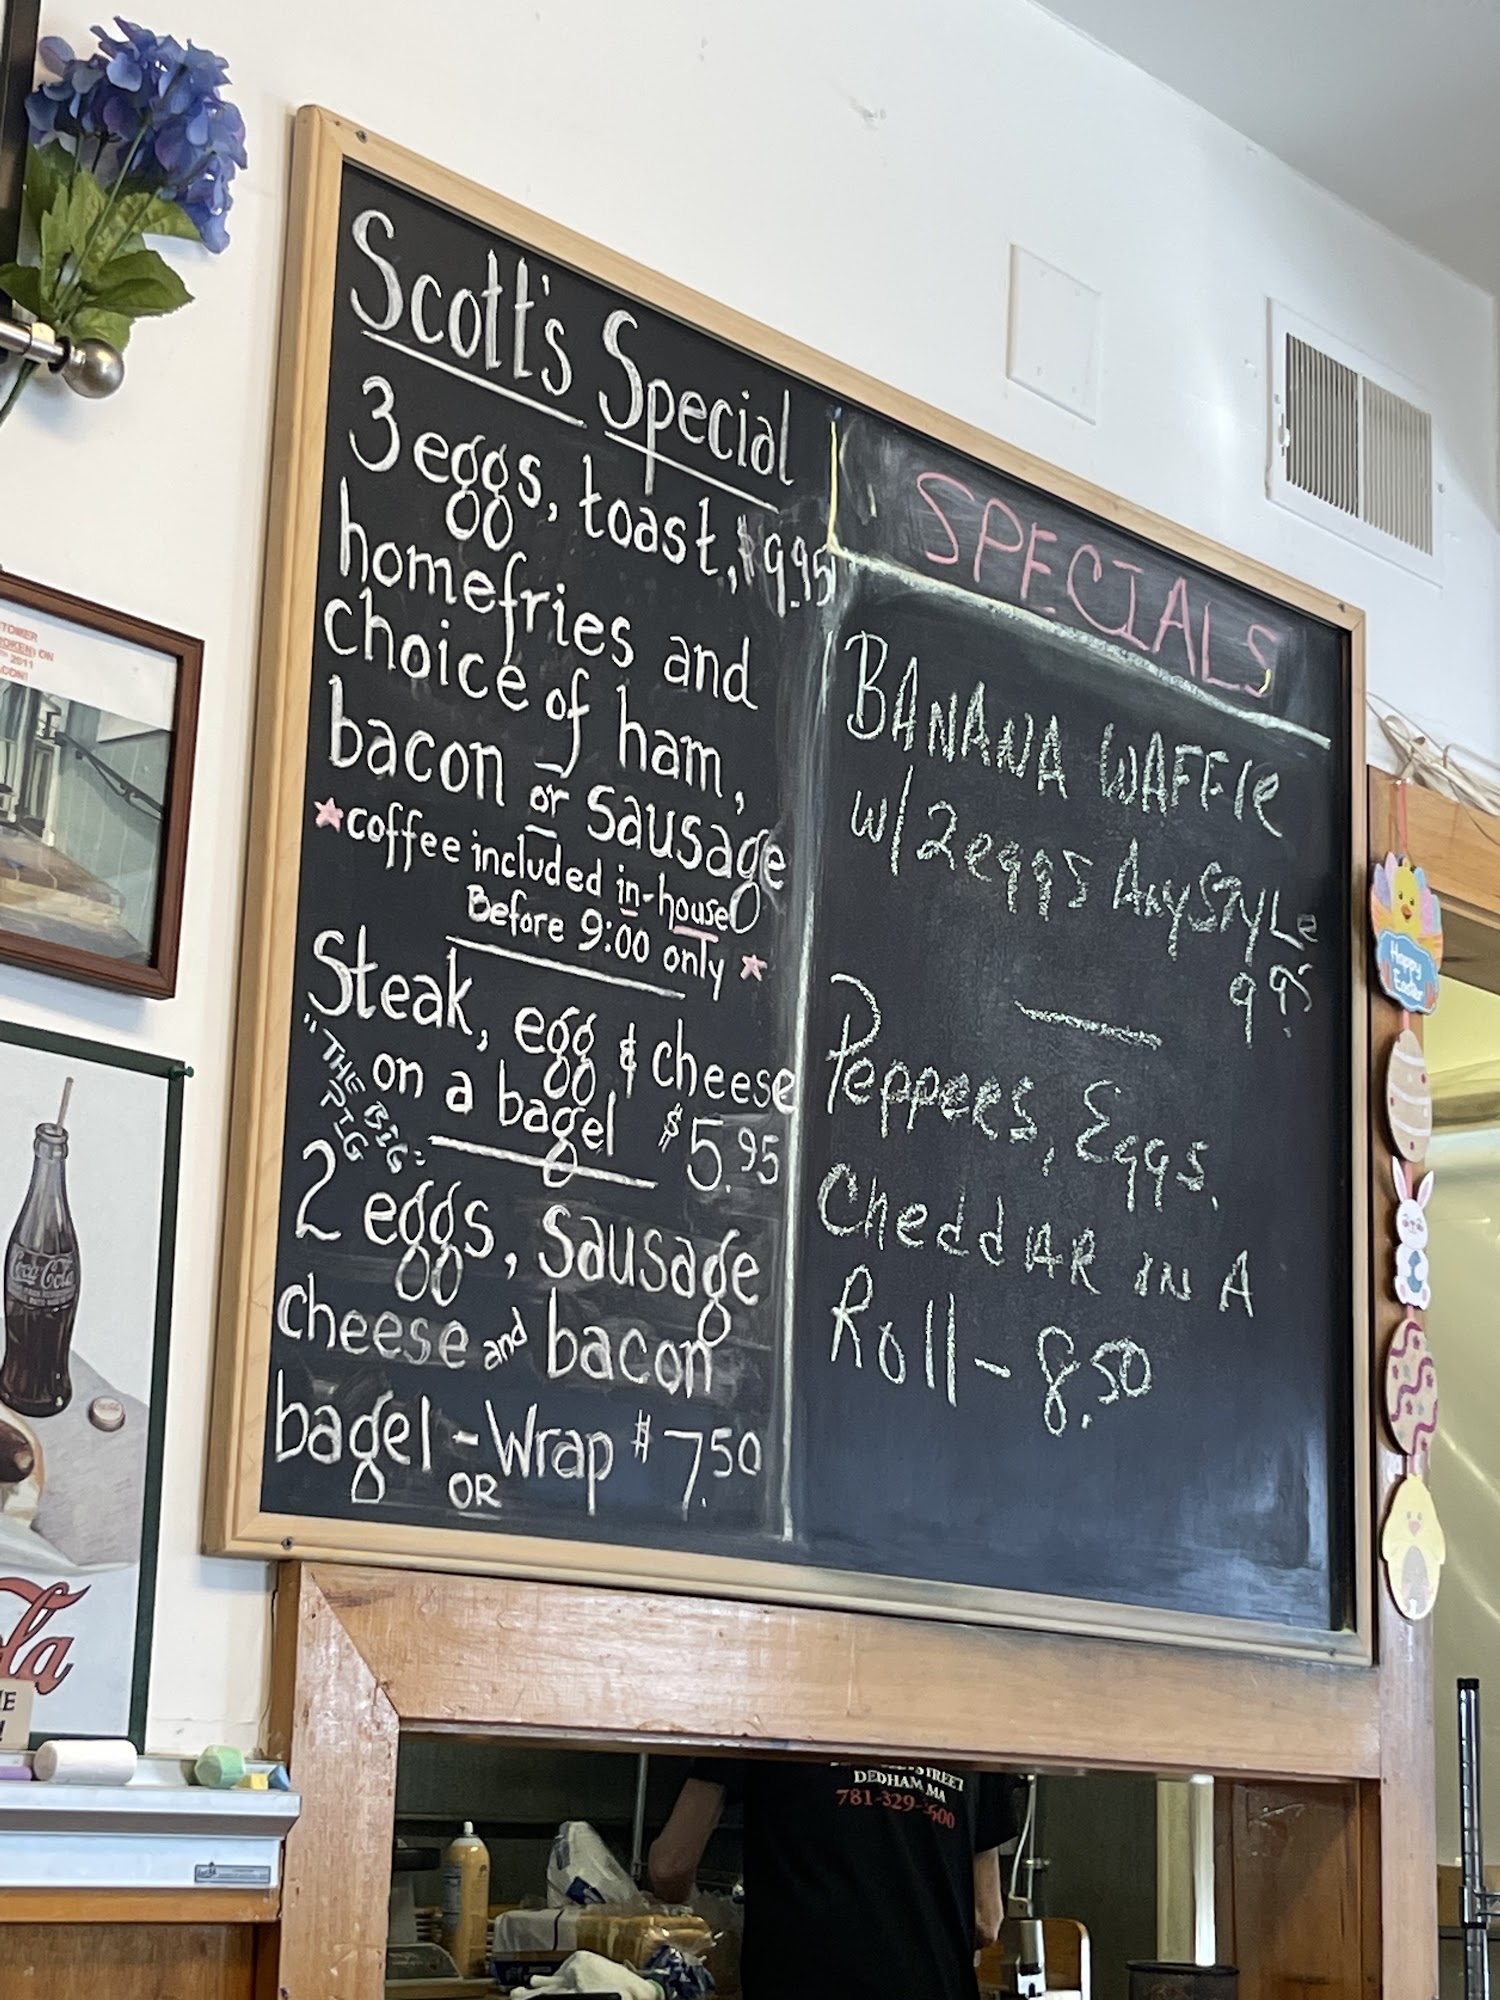 Scott's Special
3 eggs, toast, $9.95
homefries and
choice of ham,
bacon or sausage
coffee included in-house
Before 9:00 only
Steak, egg & cheese
on a bagel $5.95
"THE BIG
PIG"
2 eggs, sausage
cheese and bacon
bagel - Wrap $7.50
OR
SPECIALS
BANANA WAFFle
w/2 eggs Any STYLe
9.95
Peppers, Eggs,
Cheddar in A
Roll - 8.50
2011
Coca-Cola
Happy
Easter
STREET
DEDHAM, MA